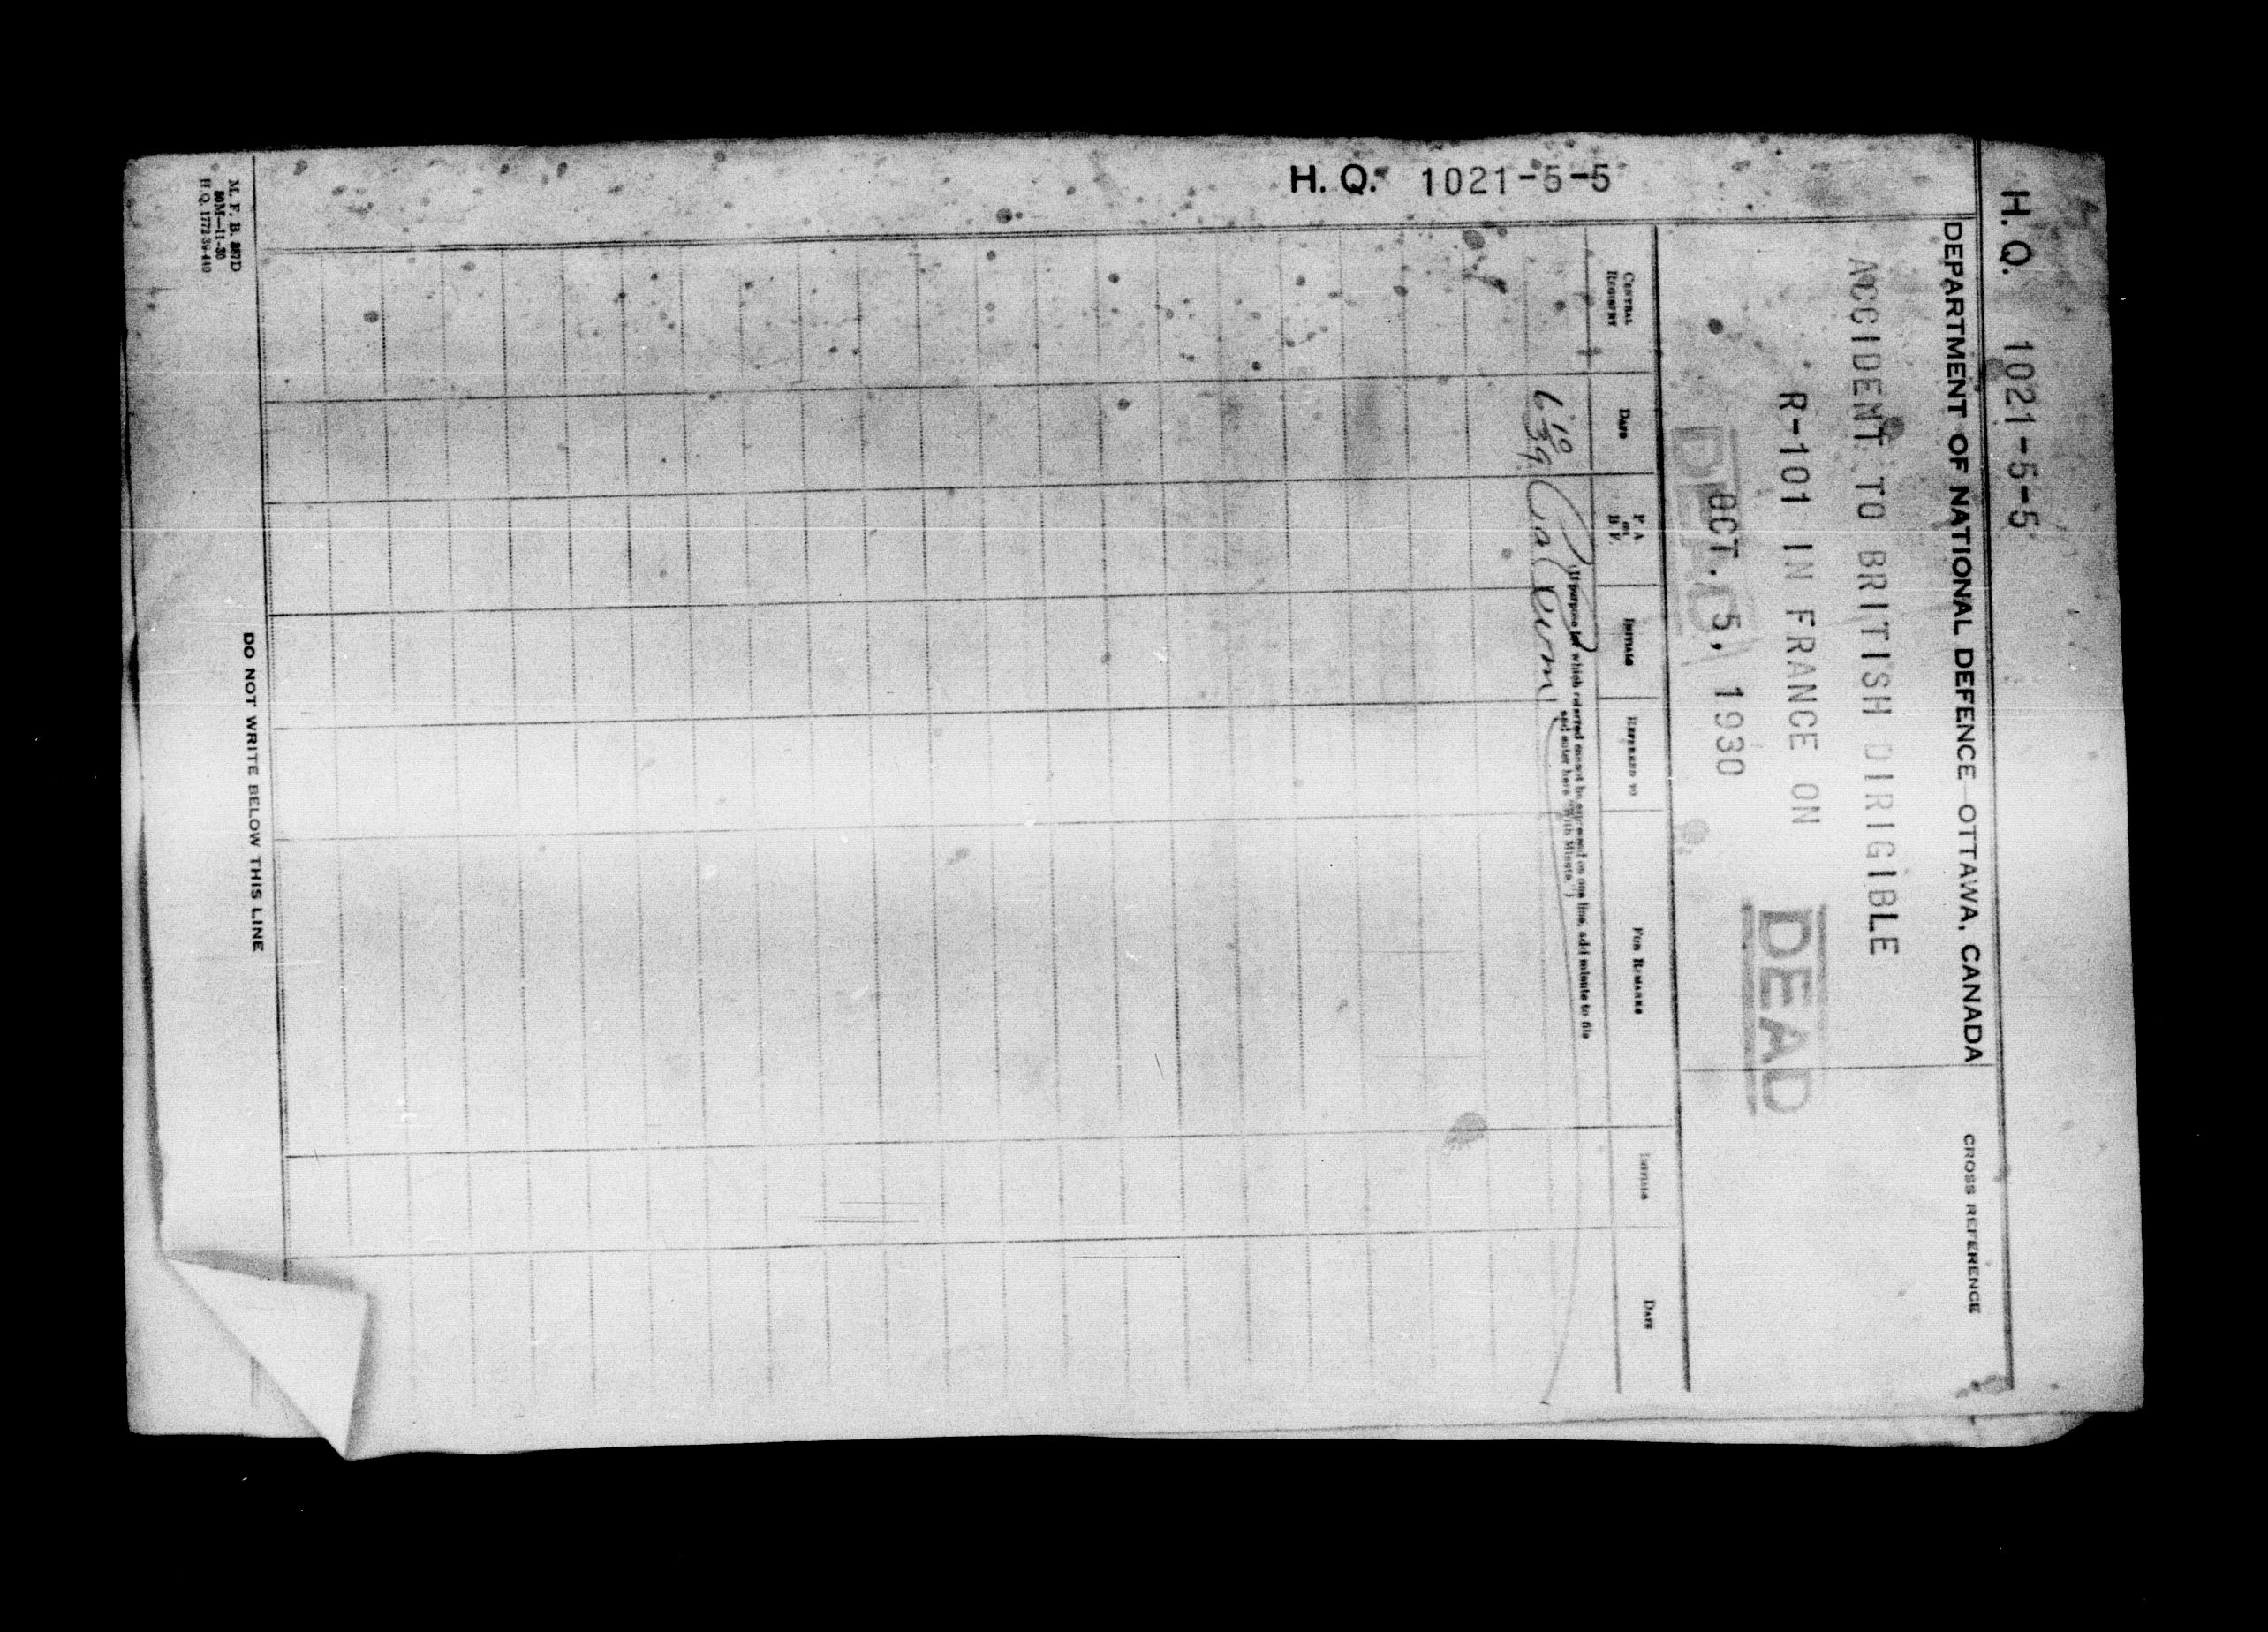 H. Q. 1021-5-5
H. Q. 1021-5-5
DEPARTMENT OF NATIONAL DEFENCE OTTAWA, CANADA
CROSS REFERENCE
ACCIDENT TO BRITISH DIRIGIBLE
R-101 IN FRANCE ON
OCT. 5, 1930
DEAD
DEAD
CENTRAL REGISTRY
DATE
P. A. OR B. F.
INITIALS
REFERRED TO
FOR REMARKS
INITIALS
DATE
(If purpose for which referred cannot be expressed on one line, add minute to file
and enter here "With Minute.")
DO NOT WRITE BELOW THIS LINE
M. F. B. 367D
H.Q. 1772-39-440